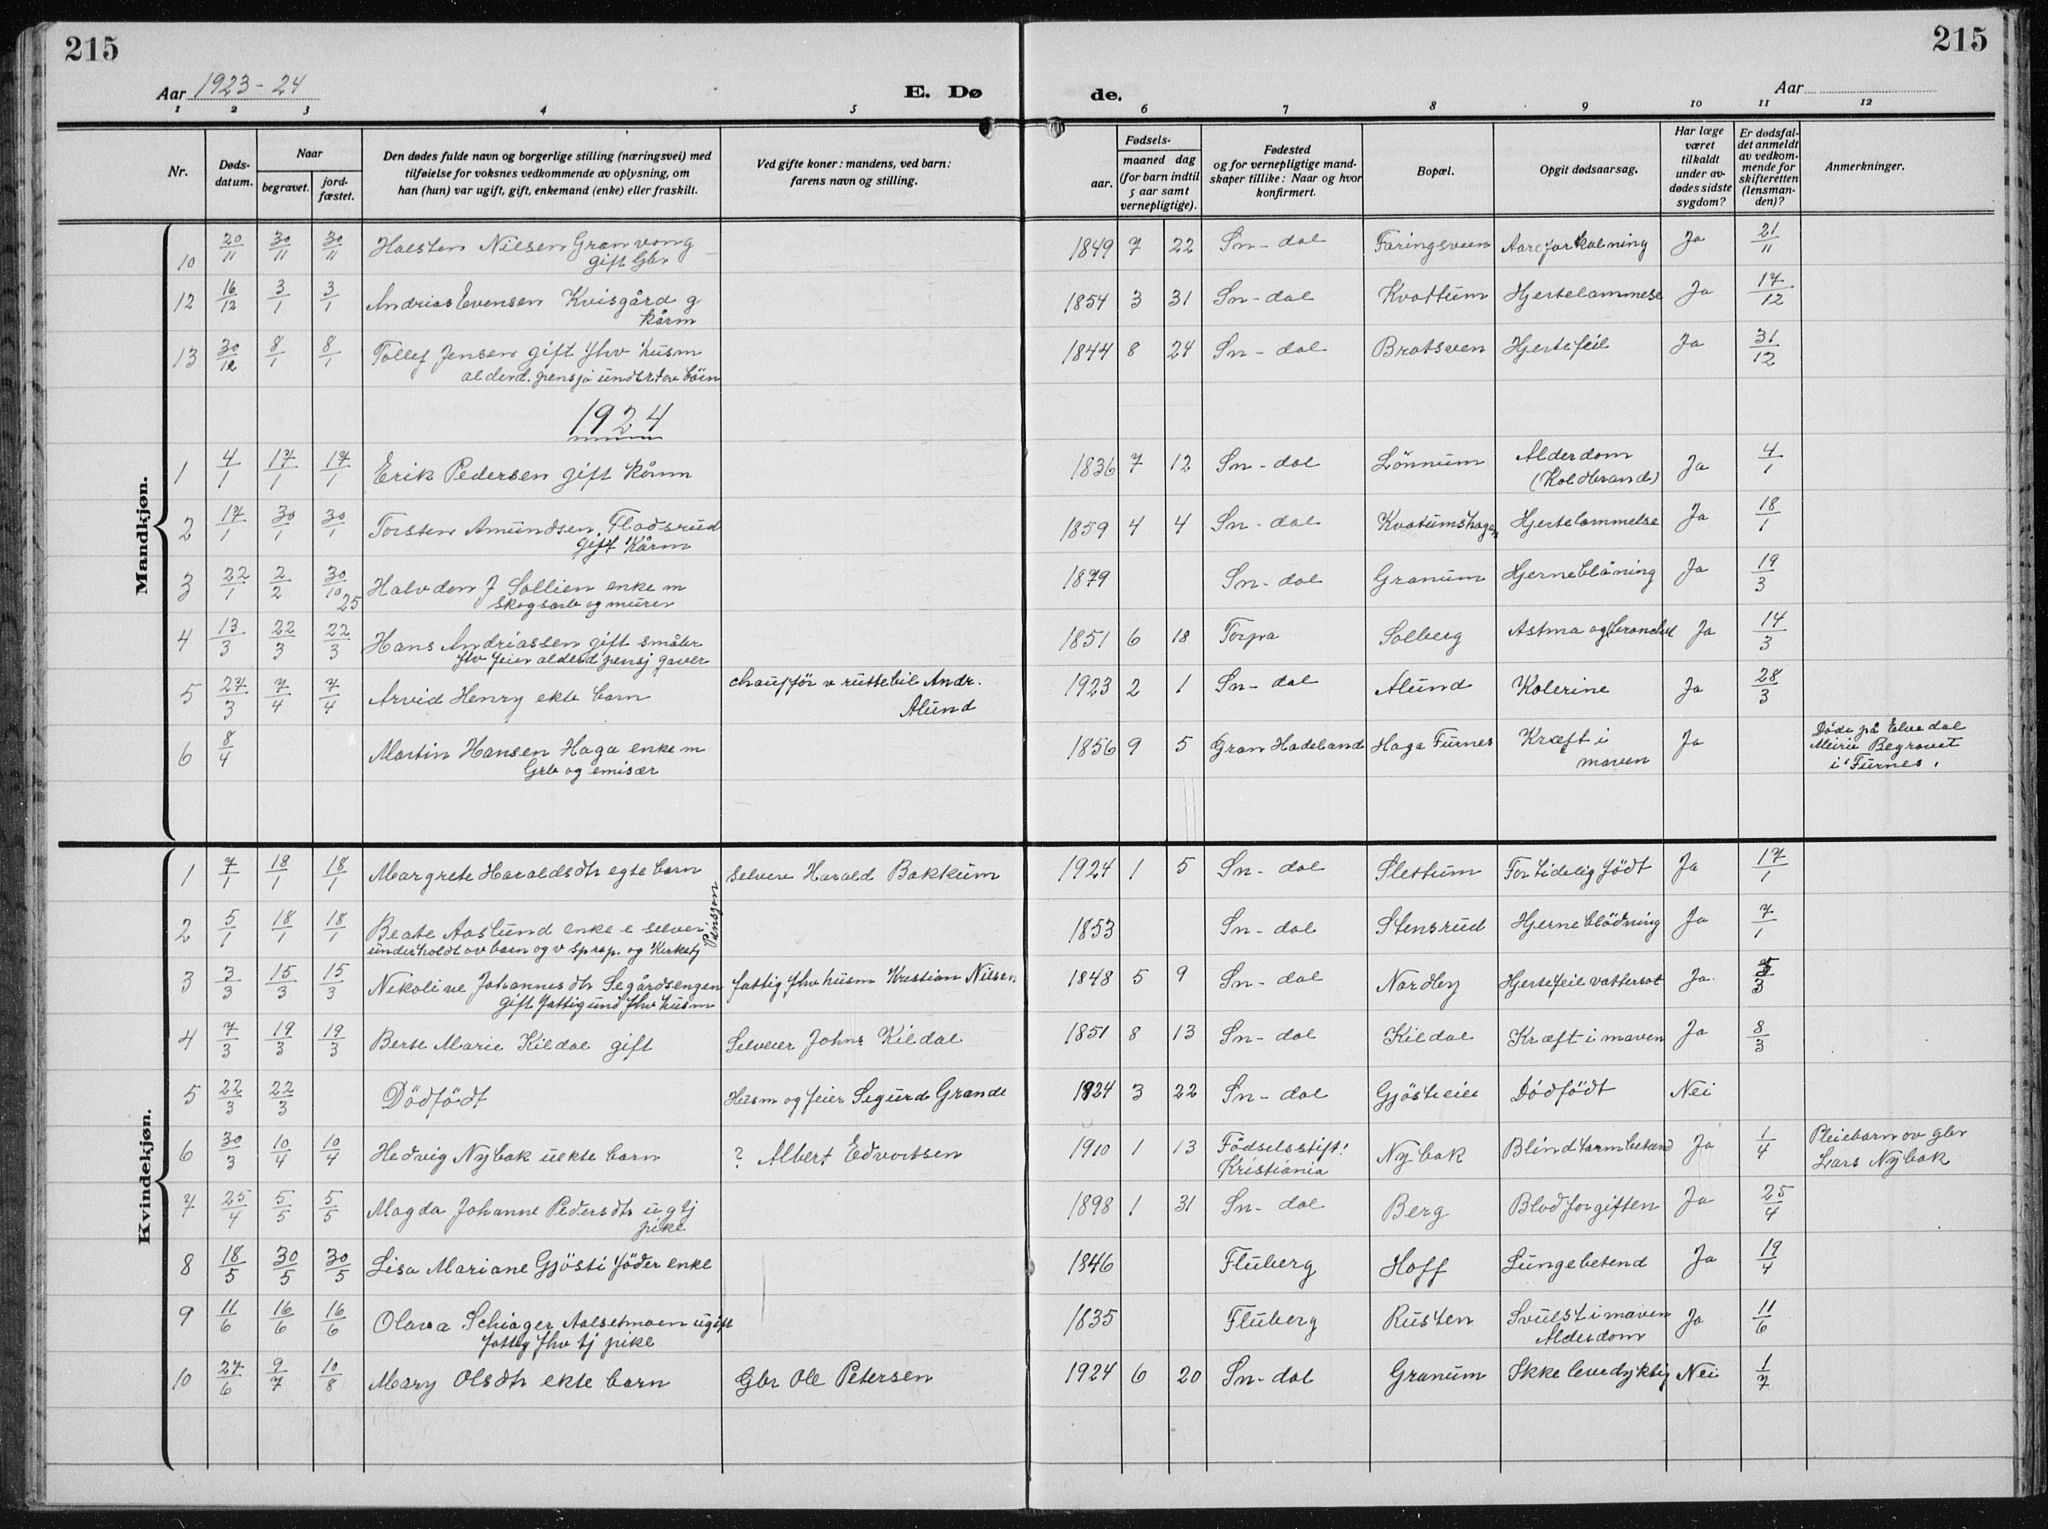 215
215
Aar 1923-24
E. Dø
de.
Aar
1 2 3 4 5 6 7 8 9 10 11 12
Nr.
Døds-
datum.
Naar
begravet.
jord-
fæstet.
Den dødes fulde navn og borgerlige stilling (næringsvei) med
tilføielse for voksnes vedkommende av oplysning, om
han (hun) var ugift, gift, enkemand (enke) eller fraskilt.
Ved gifte koner: mandens, ved barn:
farens navn og stilling.
Fødsels-
aar.
maaned dag
(for barn indtil
5 aar samt
vernepligtige).
Fødested
og for vernepligtige mand-
skaper tillike: Naar og hvor
konfirmert.
Bopæl.
Opgit dødsaarsag.
Har læge
været
tilkaldt
under av-
dødes sidste
sygdom?
Er dødsfal-
det anmeldt
av vedkom-
mende for
skifteretten
(lensman-
den)?
Anmerkninger.
Mandkjøn.
10 20/11 30/11 30/11 Halsten Nilsen Granvong 1849 7 22 Sn-dal Faringsveen Aareforkalning Ja 21/11
gift Gbr
12 16/12 3/1 3/1 Andrias Evensen Kvisgård g 1854 3 31 Sn-dal Kvattum Hjertelammelse Ja 17/12
kårm
13 30/12 8/1 8/1 Tollef Jensen gift fhv husm 1844 8 24 Sn-dal Bratsven Hjertefeil Ja 31/12
alderd. pensjo
1924
1 4/1 17/1 17/1 Erik Pedersen gift kårm 1836 7 12 Sn-dal Lönnum Alderdom Ja 4/1
(Koldbrand)
2 17/1 30/1 30/1 Torsten Amundsen Fladsrud 1859 4 4 Sn-dal Kvatumshagen Hjertelammelse Ja 18/1
gift Kårm
3 22/1 2/2 30/10 25 Halvdan J Sollien enke m 1879 Sn-dal Granum Hjerneblöning Ja 19/3
Skogsarb og murer
4 13/3 22/3 22/3 Hans Andriassen gift småbr 1851 6 18 Torpa Solberg Astma og bronchit Ja 14/3
fhv feier alderd pensj gaver
5 27/3 7/4 7/4 Arvid Henry ekte barn chauffør v ruttebil Andr. 1923 2 1 Sn-dal Alund Kolerine Ja 28/3
Alund
6 8/4 Martin Hansen Haga enke m 1856 9 5 Gran Hadeland Haga Furnes Kræft i Ja Døde på Elvedal
Grb og emisær maven Meiri Begravet
i Furnes.
Kvindekjøn.
1 7/1 18/1 18/1 Margrete Haraldsdtr egte barn selveie Harald Bakkum 1924 1 5 Sn-dal Slettum For tidelig født Ja 17/1
2 5/1 18/1 18/1 Beate Aaslund enke e selveier 1853 Sn-dal Stensrud Hjerneblödning Ja 7/1
underholdt av barn og v sprep. og Kirketj Pensjon
3 3/3 15/3 15/3 Nikoline Johannesdtr Segårdsengen fattig fhv husm Kristian Nilsen 1848 5 9 Sn-dal Nordby Hjertefeil vattersot Ja 5/3
gift fattigund fhv husm
4 7/3 19/3 19/3 Berte Marie Kildal gift Selveier Johns Kildal 1851 8 13 Sn-dal Kildal Kræft i maven Ja 8/3
5 22/3 22/3 Dödfödt Husm og feier Sigurd Grande 1924 3 22 Sn-dal Gjösteeie Dödfödt Nei
6 30/3 10/4 10/4 Hedvig Nybak uekte barn ? Albert Edvartsen 1910 1 13 Födselsstift: Nybak Blindtarmbetænd Ja 1/4 Pleiebarn av gbr
Kristiania Lars Nybak
7 25/4 5/5 5/5 Magda Johanne Pedersdtr ug tj 1898 1 31 Sn-dal Berg Blodforgiften Ja 25/4
pike
8 18/5 30/5 30/5 Lisa Mariane Gjösti föder enke 1846 Fluberg Hoff Lungebetend Ja 19/4
9 11/6 16/6 16/6 Olava Schiager Aalsetmoen ugift 1835 Fluberg Rusten Svulst i maven Ja 11/6
fattig fhv tj pike Alderdom
10 27/6 9/7 10/8 Mary Olsdtr ekte barn Gbr Ole Petersen 1924 6 20 Sn-dal Granum Ikke levedyktig Nei 1/7